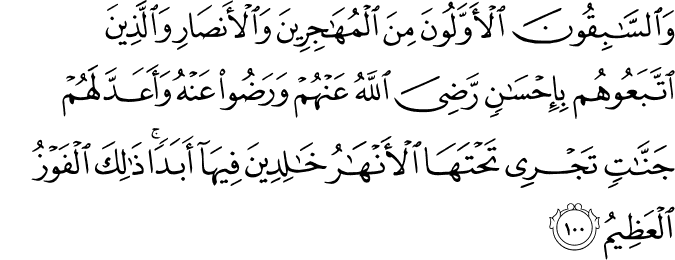 وَٱلسَّـٰبِقُونَ ٱلْأَوَّلُونَ مِنَ ٱلْمُهَـٰجِرِينَ وَٱلْأَنصَارِ وَٱلَّذِينَ
ٱتَّبَعُوهُم بِإِحْسَـٰنٍ رَّضِىَ ٱللَّهُ عَنْهُمْ وَرَضُوا۟ عَنْهُ وَأَعَدَّ لَهُمْ
جَنَّـٰتٍ تَجْرِى تَحْتَهَا ٱلْأَنْهَـٰرُ خَـٰلِدِينَ فِيهَآ أَبَدًا ۚ ذَٰلِكَ ٱلْفَوْزُ
ٱلْعَظِيمُ ١٠٠